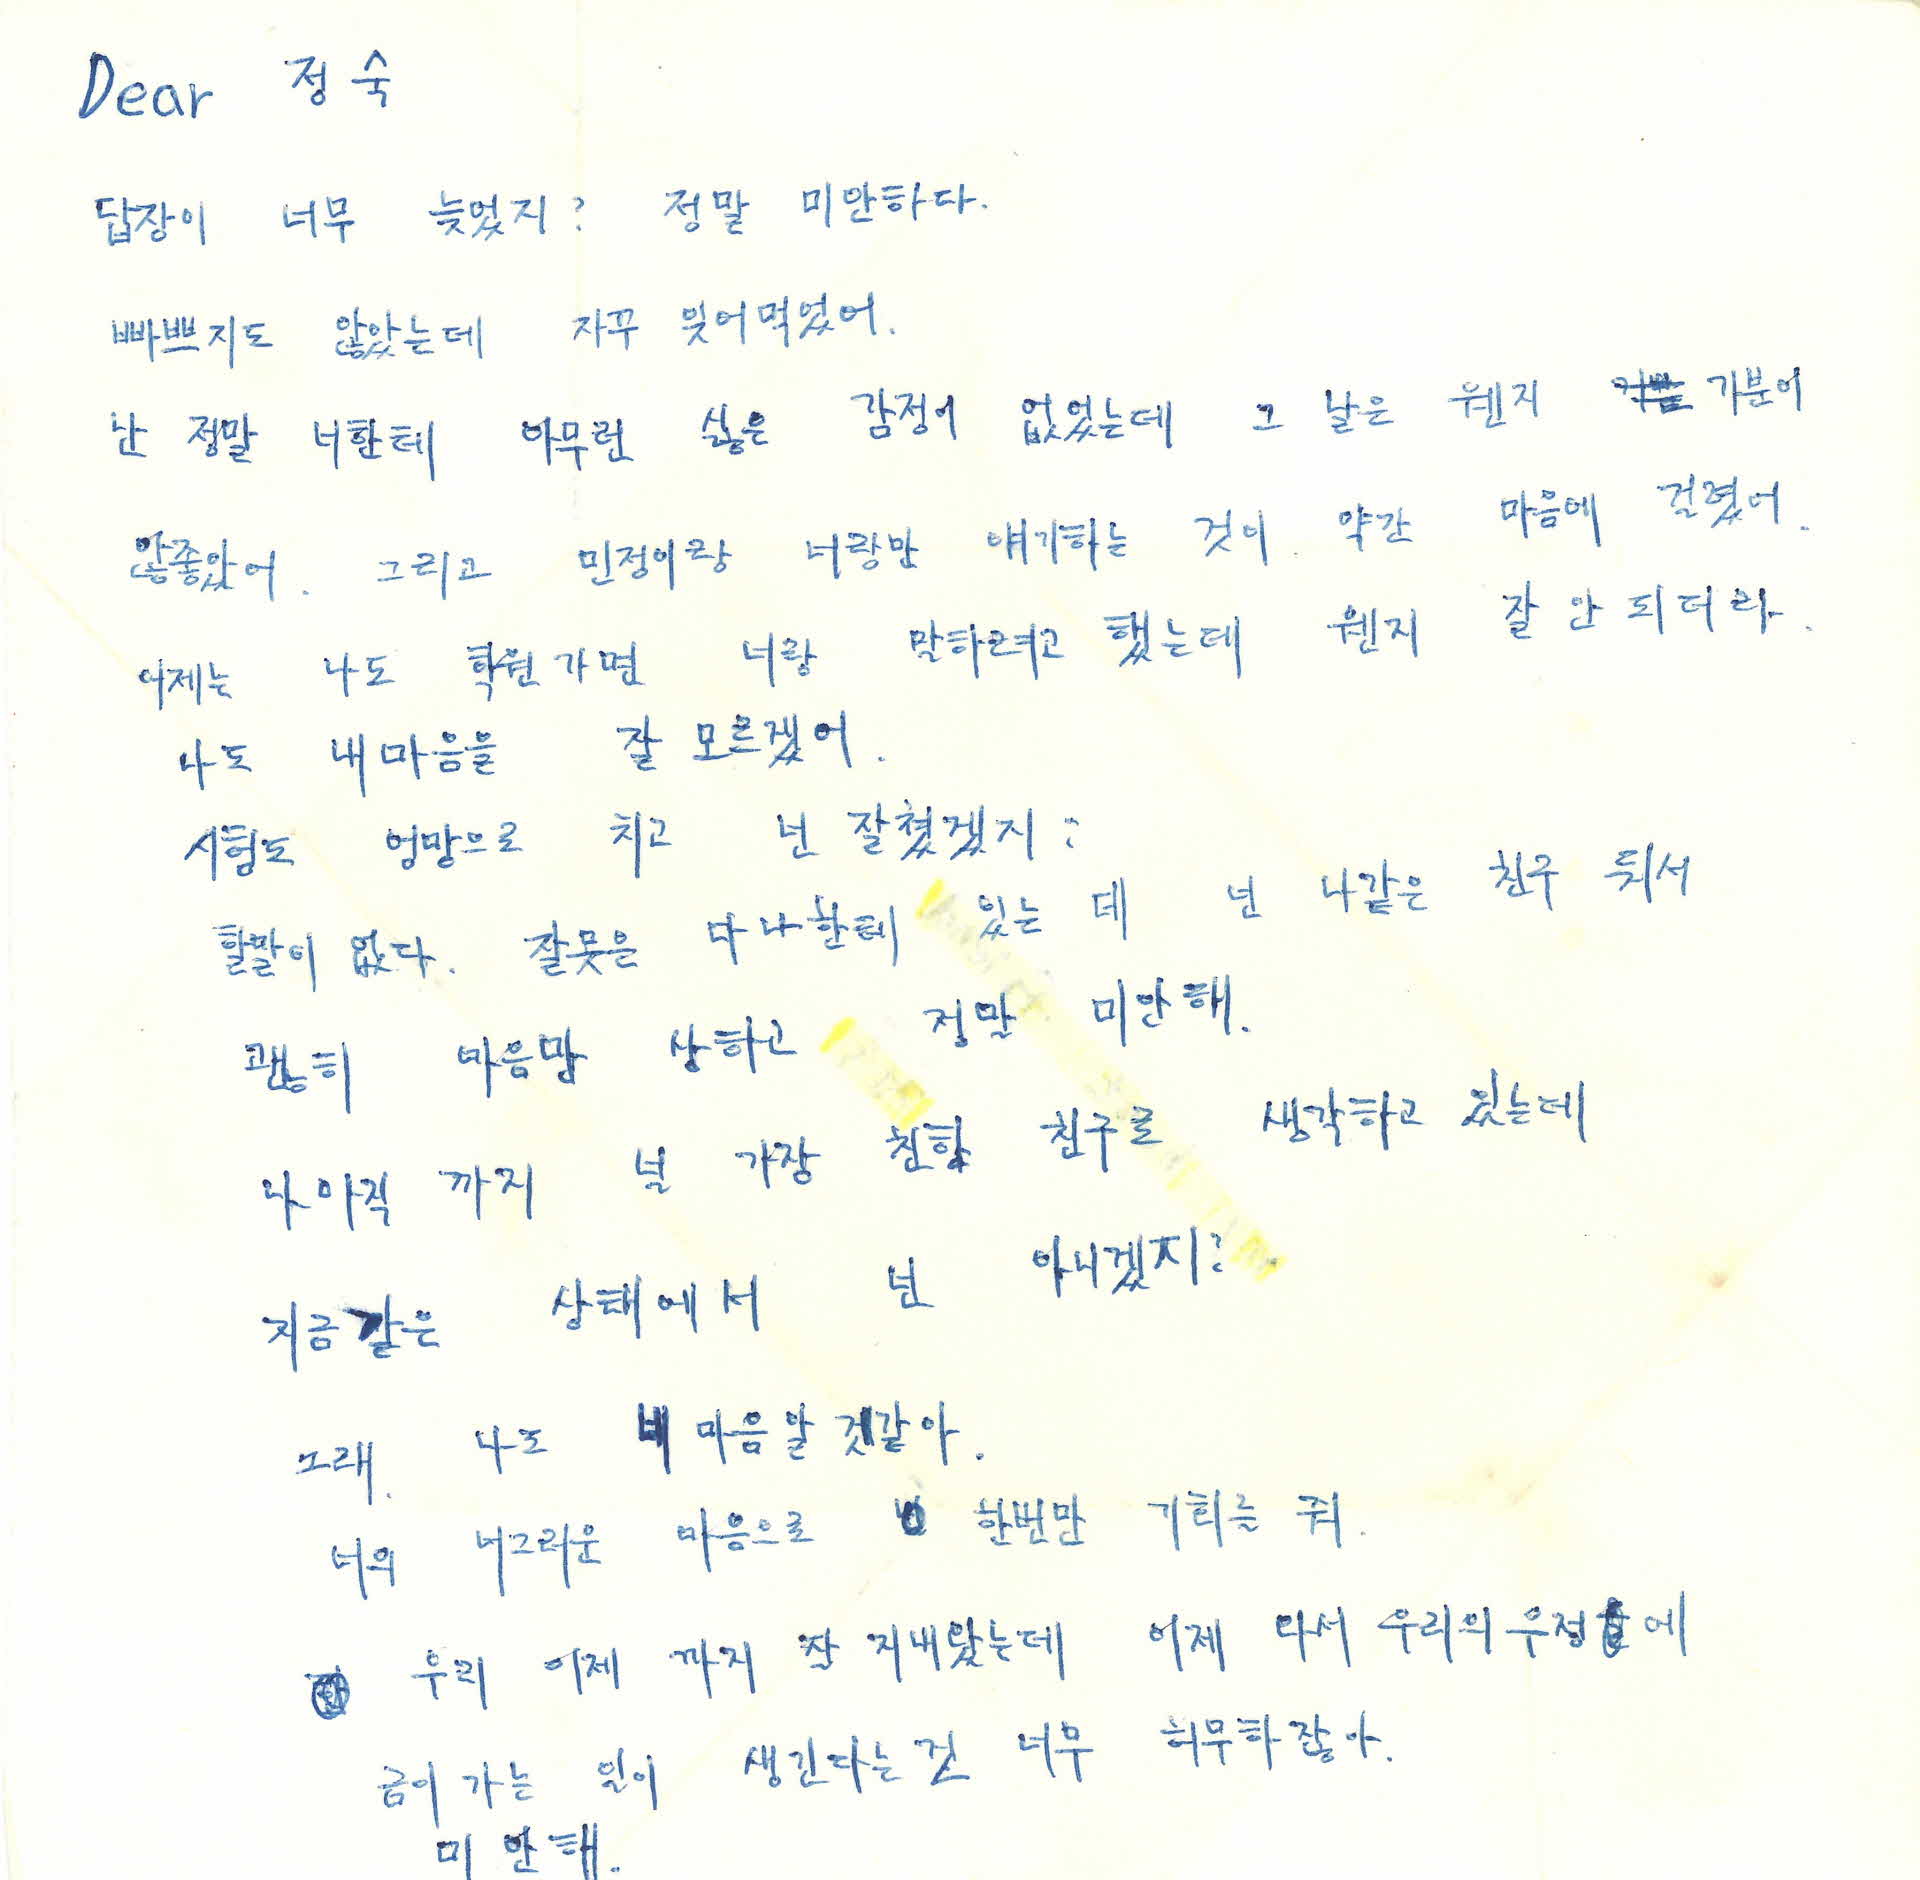 Dear 정숙
답장이 너무 늦었지? 정말 미안하다.
빠쁘지도 않았는데 자꾸 잊어먹었어.
난 정말 너한테 아무런 싫은 감정이 없었는데 그 날은 웬지 기분이
않좋았어. 그리고 민정이랑 너랑만 얘기하는 것이 약간 마음에 걸렸어.
어제는 나도 학원가면 너랑 말하려고 했는데 웬지 잘 안되더라.
나도 내마음을 잘 모르겠어.
시험도 엉망으로 치고 넌 잘쳤겠지?
할말이 없다. 잘못은 다 나한테 있는 데 넌 나같은 친구 둬서
괜히 마음만 상하고 정말 미안해.
나 아직 까지 널 가장 친한 친구로 생각하고 있는데
지금 같은 상태에서 넌 아니겠지?
그래. 나도 네 마음 알 것같아.
너의 너그러운 마음으로 한번만 기회를 줘.
우리 이제 까지 잘 지내왔는데 이제 와서 우리의 우정에
금이 가는 일이 생긴다는 것 너무 허무하잖아.
미안해.